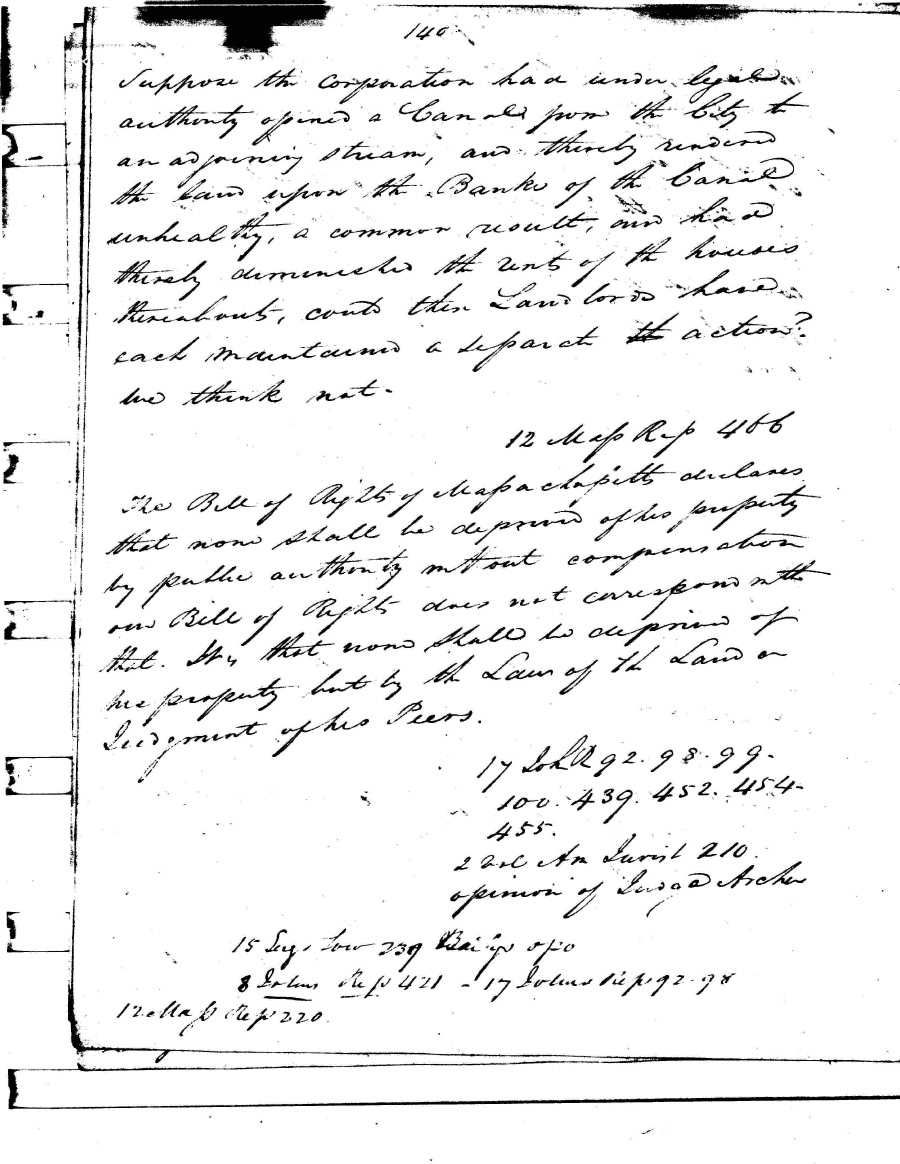 140
Suppose the corporation had under legal
authority opened a Canal from the City to
an adjoining stream, and thereby rendered
the land upon the Banks of the Canal
unhealthy, a common result, and had
thereby diminished the rents of the houses
thereabouts, could these Landlords have
each maintained a separate action?
We think not.
12 Mass Rep 466
The Bill of Rights of Massachusetts declares
that none shall be deprived of his property
by public authority without compensation
our Bill of Rights does not correspond with
that. It is that none shall be deprived of
his property but by the Laws of the Land or
Judgment of his Peers.
17 Joh R 92. 98. 99.
100. 439. 452. 454.
455.
2 vol Am Jurist 210.
opinion of Judge Archer
15 Low 239
8 Johns Rep 421 - 17 Johns Rep 92. 98
12 Mass Rep 220.